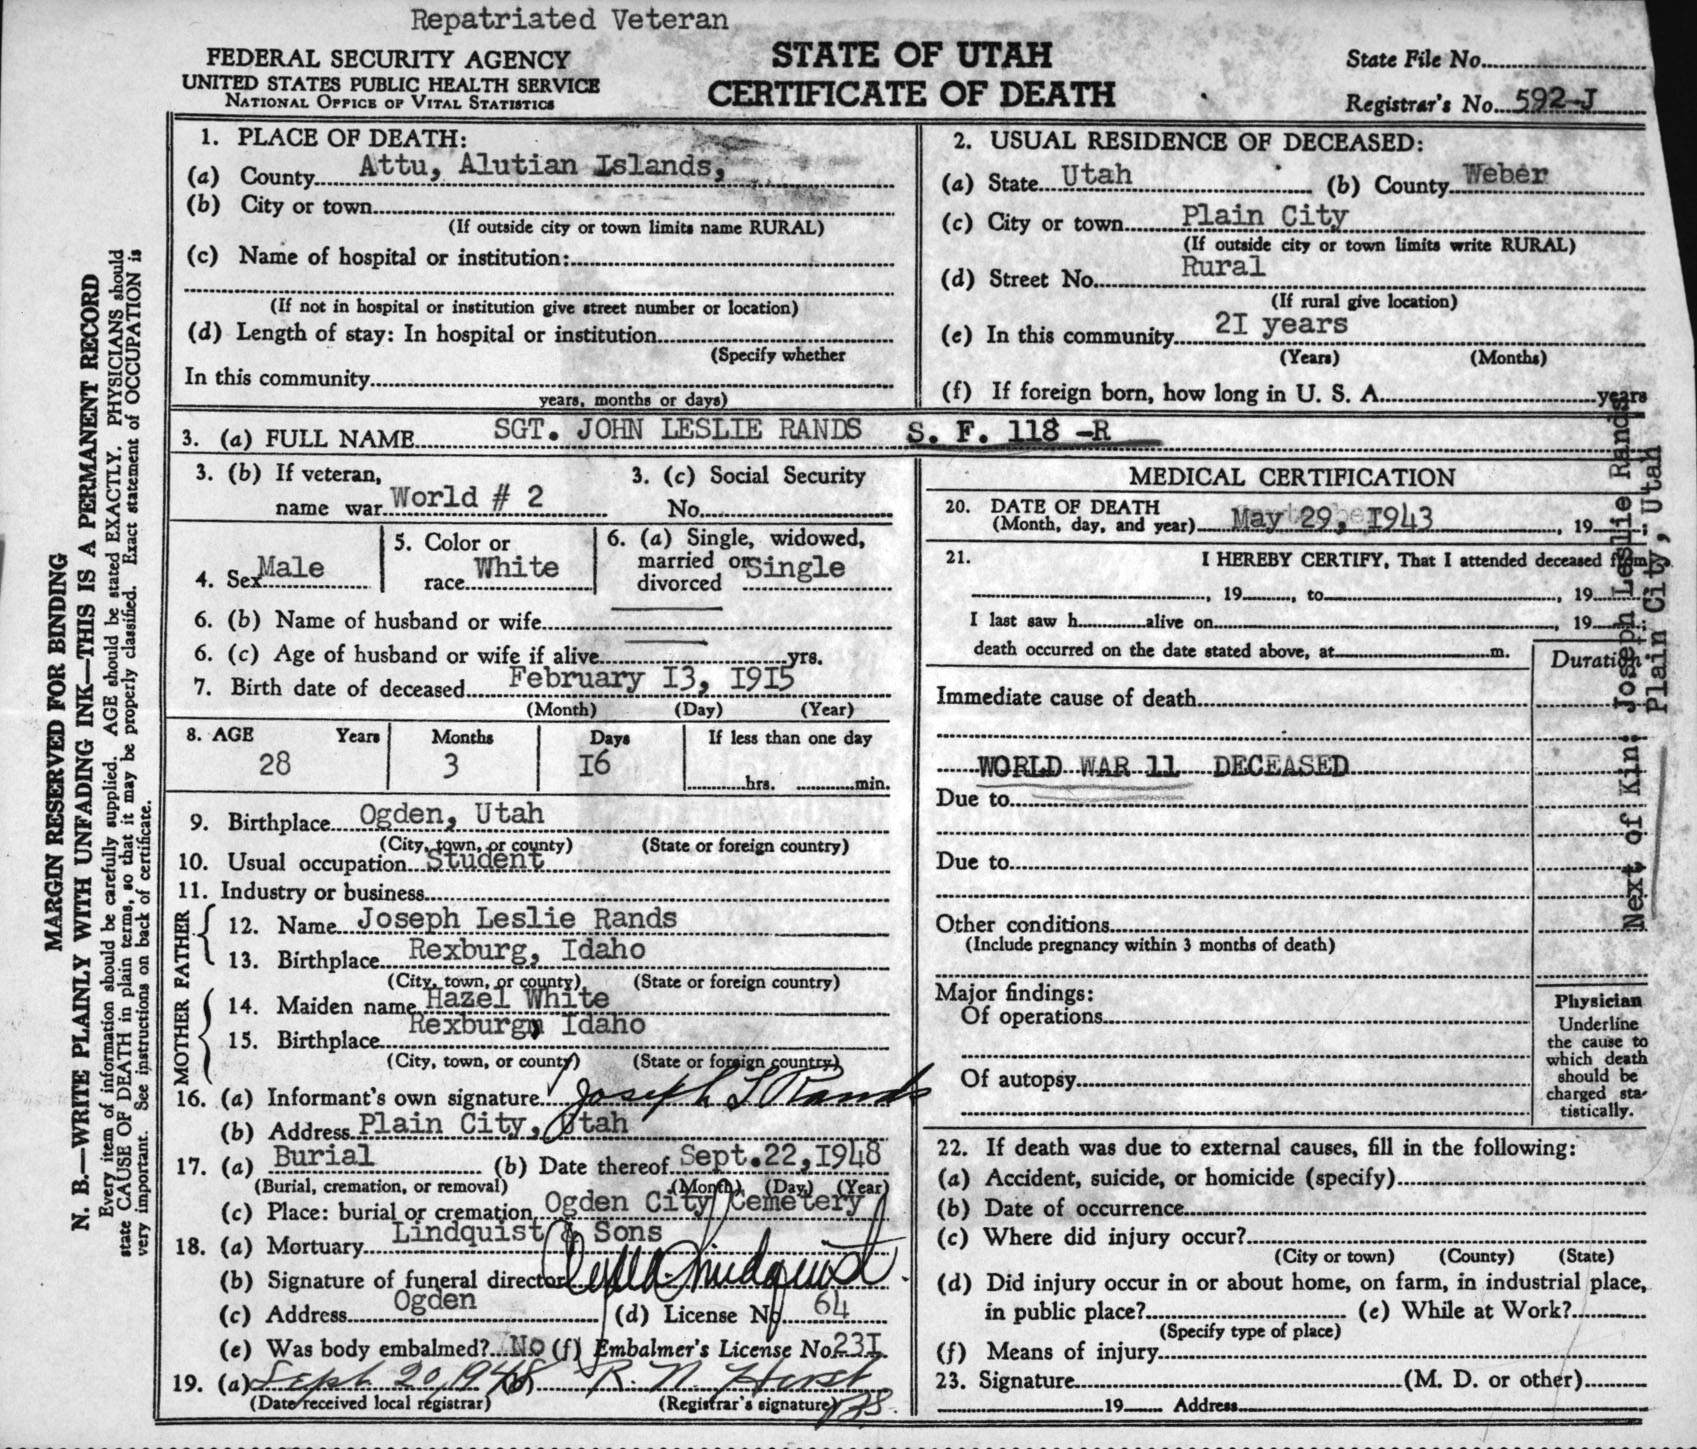 Repatriated Veteran
FEDERAL SECURITY AGENCY
UNITED STATES PUBLIC HEALTH SERVICE
NATIONAL OFFICE OF VITAL STATISTICS
STATE OF UTAH
CERTIFICATE OF DEATH
State File No.
Registrar's No. 592-J
1. PLACE OF DEATH:
(a) County Attu, Alutian Islands,
(b) City or town
(If outside city or town limits name RURAL)
(c) Name of hospital or institution:
(If not in hospital or institution give street number or location)
(d) Length of stay: In hospital or institution
(Specify whether
In this community
years, months or days)
2. USUAL RESIDENCE OF DECEASED:
(a) State Utah (b) County Weber
(c) City or town Plain City
(If outside city or town limits write RURAL)
(d) Street No. Rural
(If rural give location)
(e) In this community 2I years
(Years) (Months)
(f) If foreign born, how long in U. S. A. years
3. (a) FULL NAME SGT. JOHN LESLIE RANDS S. F. 118 -R
3. (b) If veteran, name war World # 2
3. (c) Social Security No.
4. Sex Male
5. Color or race White
6. (a) Single, widowed, married or divorced Single
6. (b) Name of husband or wife
6. (c) Age of husband or wife if alive yrs.
7. Birth date of deceased February I3, I9I5
(Month) (Day) (Year)
8. AGE Years Months Days If less than one day
28 3 I6 hrs. min.
9. Birthplace Ogden, Utah
(City, town, or county) (State or foreign country)
10. Usual occupation Student
11. Industry or business
FATHER
12. Name Joseph Leslie Rands
13. Birthplace Rexburg, Idaho
(City, town, or county) (State or foreign country)
MOTHER
14. Maiden name Hazel White
15. Birthplace Rexburg, Idaho
(City, town, or county) (State or foreign country)
16. (a) Informant's own signature Joseph L Rands
(b) Address Plain City, Utah
17. (a) Burial (b) Date thereof Sept.22,I948
(Burial, cremation, or removal) (Month) (Day) (Year)
(c) Place: burial or cremation Ogden City Cemetery
18. (a) Mortuary Lindquist & Sons
(b) Signature of funeral director Lindquist
(c) Address Ogden (d) License No. 64
(e) Was body embalmed? No (f) Embalmer's License No. 23I
19. (a) Sept 20, 1948 (b) R. N. Hirst
(Date received local registrar) (Registrar's signature)
MEDICAL CERTIFICATION
20. DATE OF DEATH
(Month, day, and year) May 29, I943, 19
21. I HEREBY CERTIFY, That I attended deceased from
, 19 , to , 19
I last saw h alive on , 19
death occurred on the date stated above, at m.
Duration
Immediate cause of death
WORLD WAR 11 DECEASED
Due to
Due to
Other conditions
(Include pregnancy within 3 months of death)
Major findings:
Of operations
Of autopsy
Physician
Underline
the cause to
which death
should be
charged sta-
tistically.
22. If death was due to external causes, fill in the following:
(a) Accident, suicide, or homicide (specify)
(b) Date of occurrence
(c) Where did injury occur?
(City or town) (County) (State)
(d) Did injury occur in or about home, on farm, in industrial place,
in public place? (e) While at Work?
(Specify type of place)
(f) Means of injury
23. Signature (M. D. or other)
19 Address
Next of Kin: Joseph Leslie Rands
Plain City, Utah
MARGIN RESERVED FOR BINDING
N. B.—WRITE PLAINLY WITH UNFADING INK—THIS IS A PERMANENT RECORD
Every item of information should be carefully supplied. AGE should be stated EXACTLY. PHYSICIANS should
state CAUSE OF DEATH in plain terms, so that it may be properly classified. Exact statement of OCCUPATION is
very important. See instructions on back of certificate.